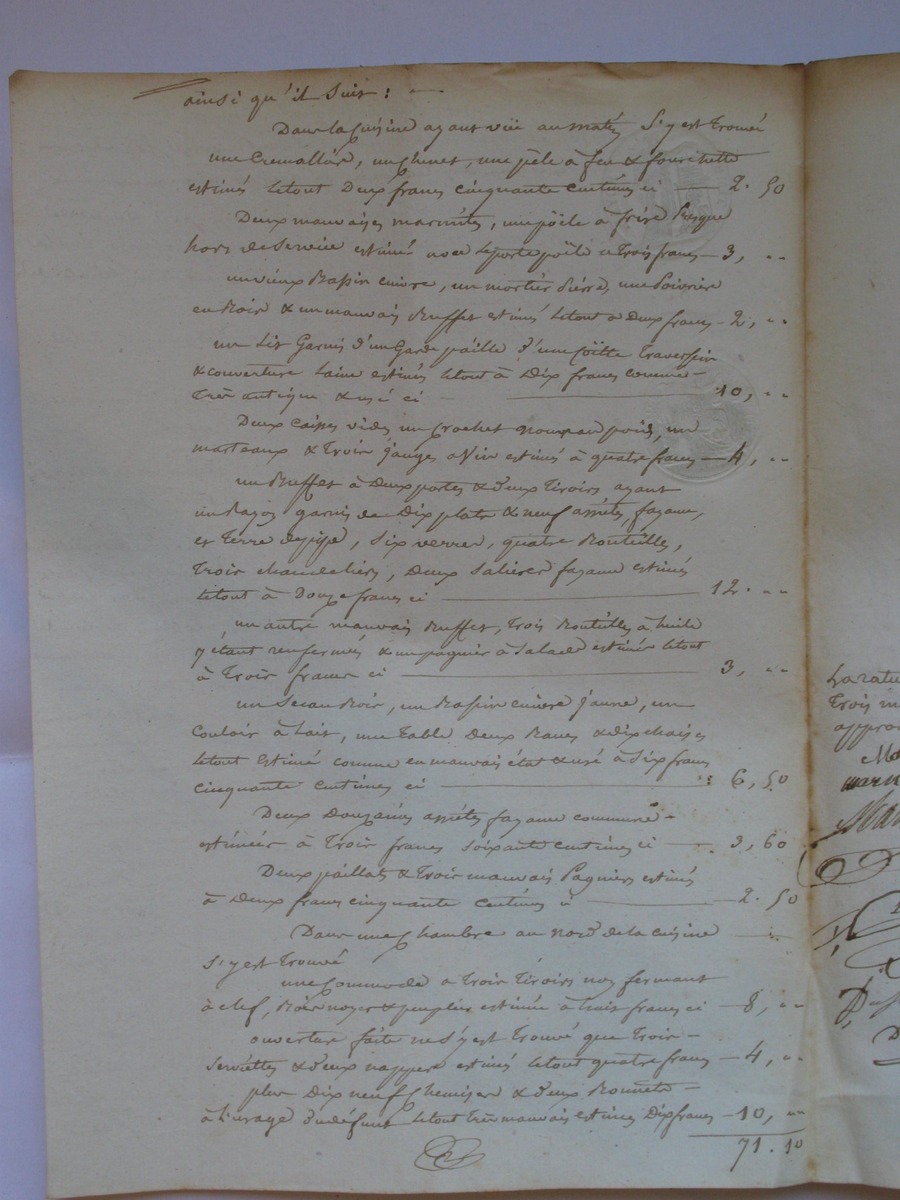 ainsi qu'il Suit :
Dans la Cuisine ayant vüe au matin S'y est Trouvé
une Cremallère, un chenet, une pèle à feu & fourchette
estimés letout Deux francs cinquante centimes ci — 2. 50
Deux mauvaises marmites, une pöële à frire Presque
hors de Service estimés avec leporte pöële a Trois francs — 3, "
un vieux Bassin cuivre, un mortier Pierre, une Poivrière
en Bois & un mauvais Buffet estimés letout a Deux francs — 2, "
un Lit Garni d'un Garde paille d'une Traversin
& couverture Laine estimés letout à Dix francs comme
Très antique & usé ci — 10, "
Deux caisses vides un Crochet nouveau poids, un
marteaux & Trois jauges a Vin estimés à quatre francs — 4, "
un Buffet à Deux portes & deux Tiroirs ayant
un Rayon garnis de Dix plats & neuf assiètes, fayance,
et Terre depipe, Six verres, quatre Bouteilles,
Trois chandeliers, Deux Salières fayance estimés
letout à Douze francs ci — 12. "
un autre mauvais Buffet, Trois Bouteilles à huile
y étant renfermées & un pagnier à Salade estimés letout
à Trois francs ci — 3, "
un Seau Bois, un Bassin cuivre jaune, un
Couloir à Lait, une Table Deux Bancs & dix chaises
letout Estimé comme en mauvais état & usé à Six francs
cinquante centimes ci — 6, 50
Deux Douzaines assiètes fayance commune
estimées à Trois francs Soixante centimes ci — 3, 60
Deux paillats & Trois mauvais Pagniers estimés
à Deux francs cinquante centimes ci — 2. 50
Dans une Chambre au Nord de la cuisine
S'y est Trouvé
une Commode a Trois Tiroirs non fermant
à clef, Bois noyer & peuplier estimée à huit francs ci — 8, "
ouverture faite ne S'y est Trouvé que Trois
Serviettes & deux nappes estimés letout quatre francs — 4, "
plus Dix neuf Chemises & deux Bonnets
à l'usage du défunt letout Très mauvais estimés Dix francs — 10, "
71. 10
La ratu
Trois m
appro